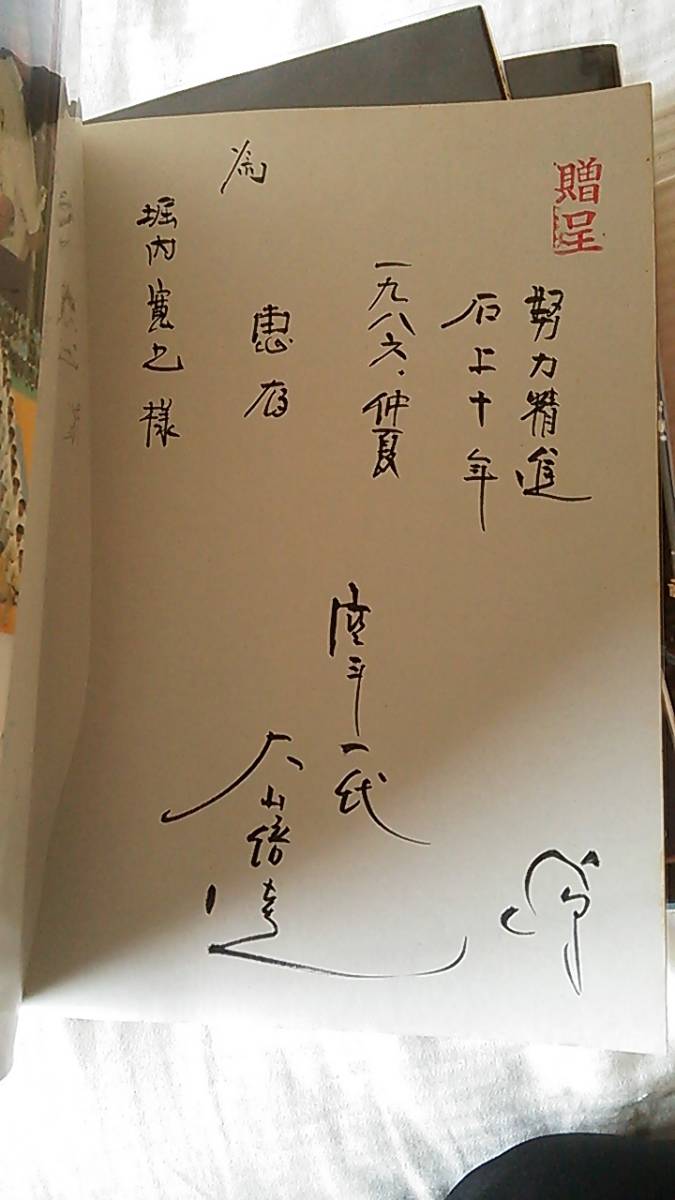 贈呈
努力精進
石上十年
一九八六、仲夏
恵存
為
堀内寛之様
空手一代
大山倍達